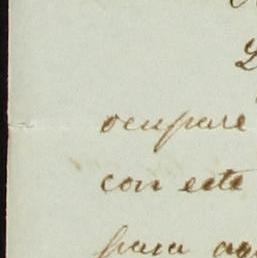 ocupare
con este
para